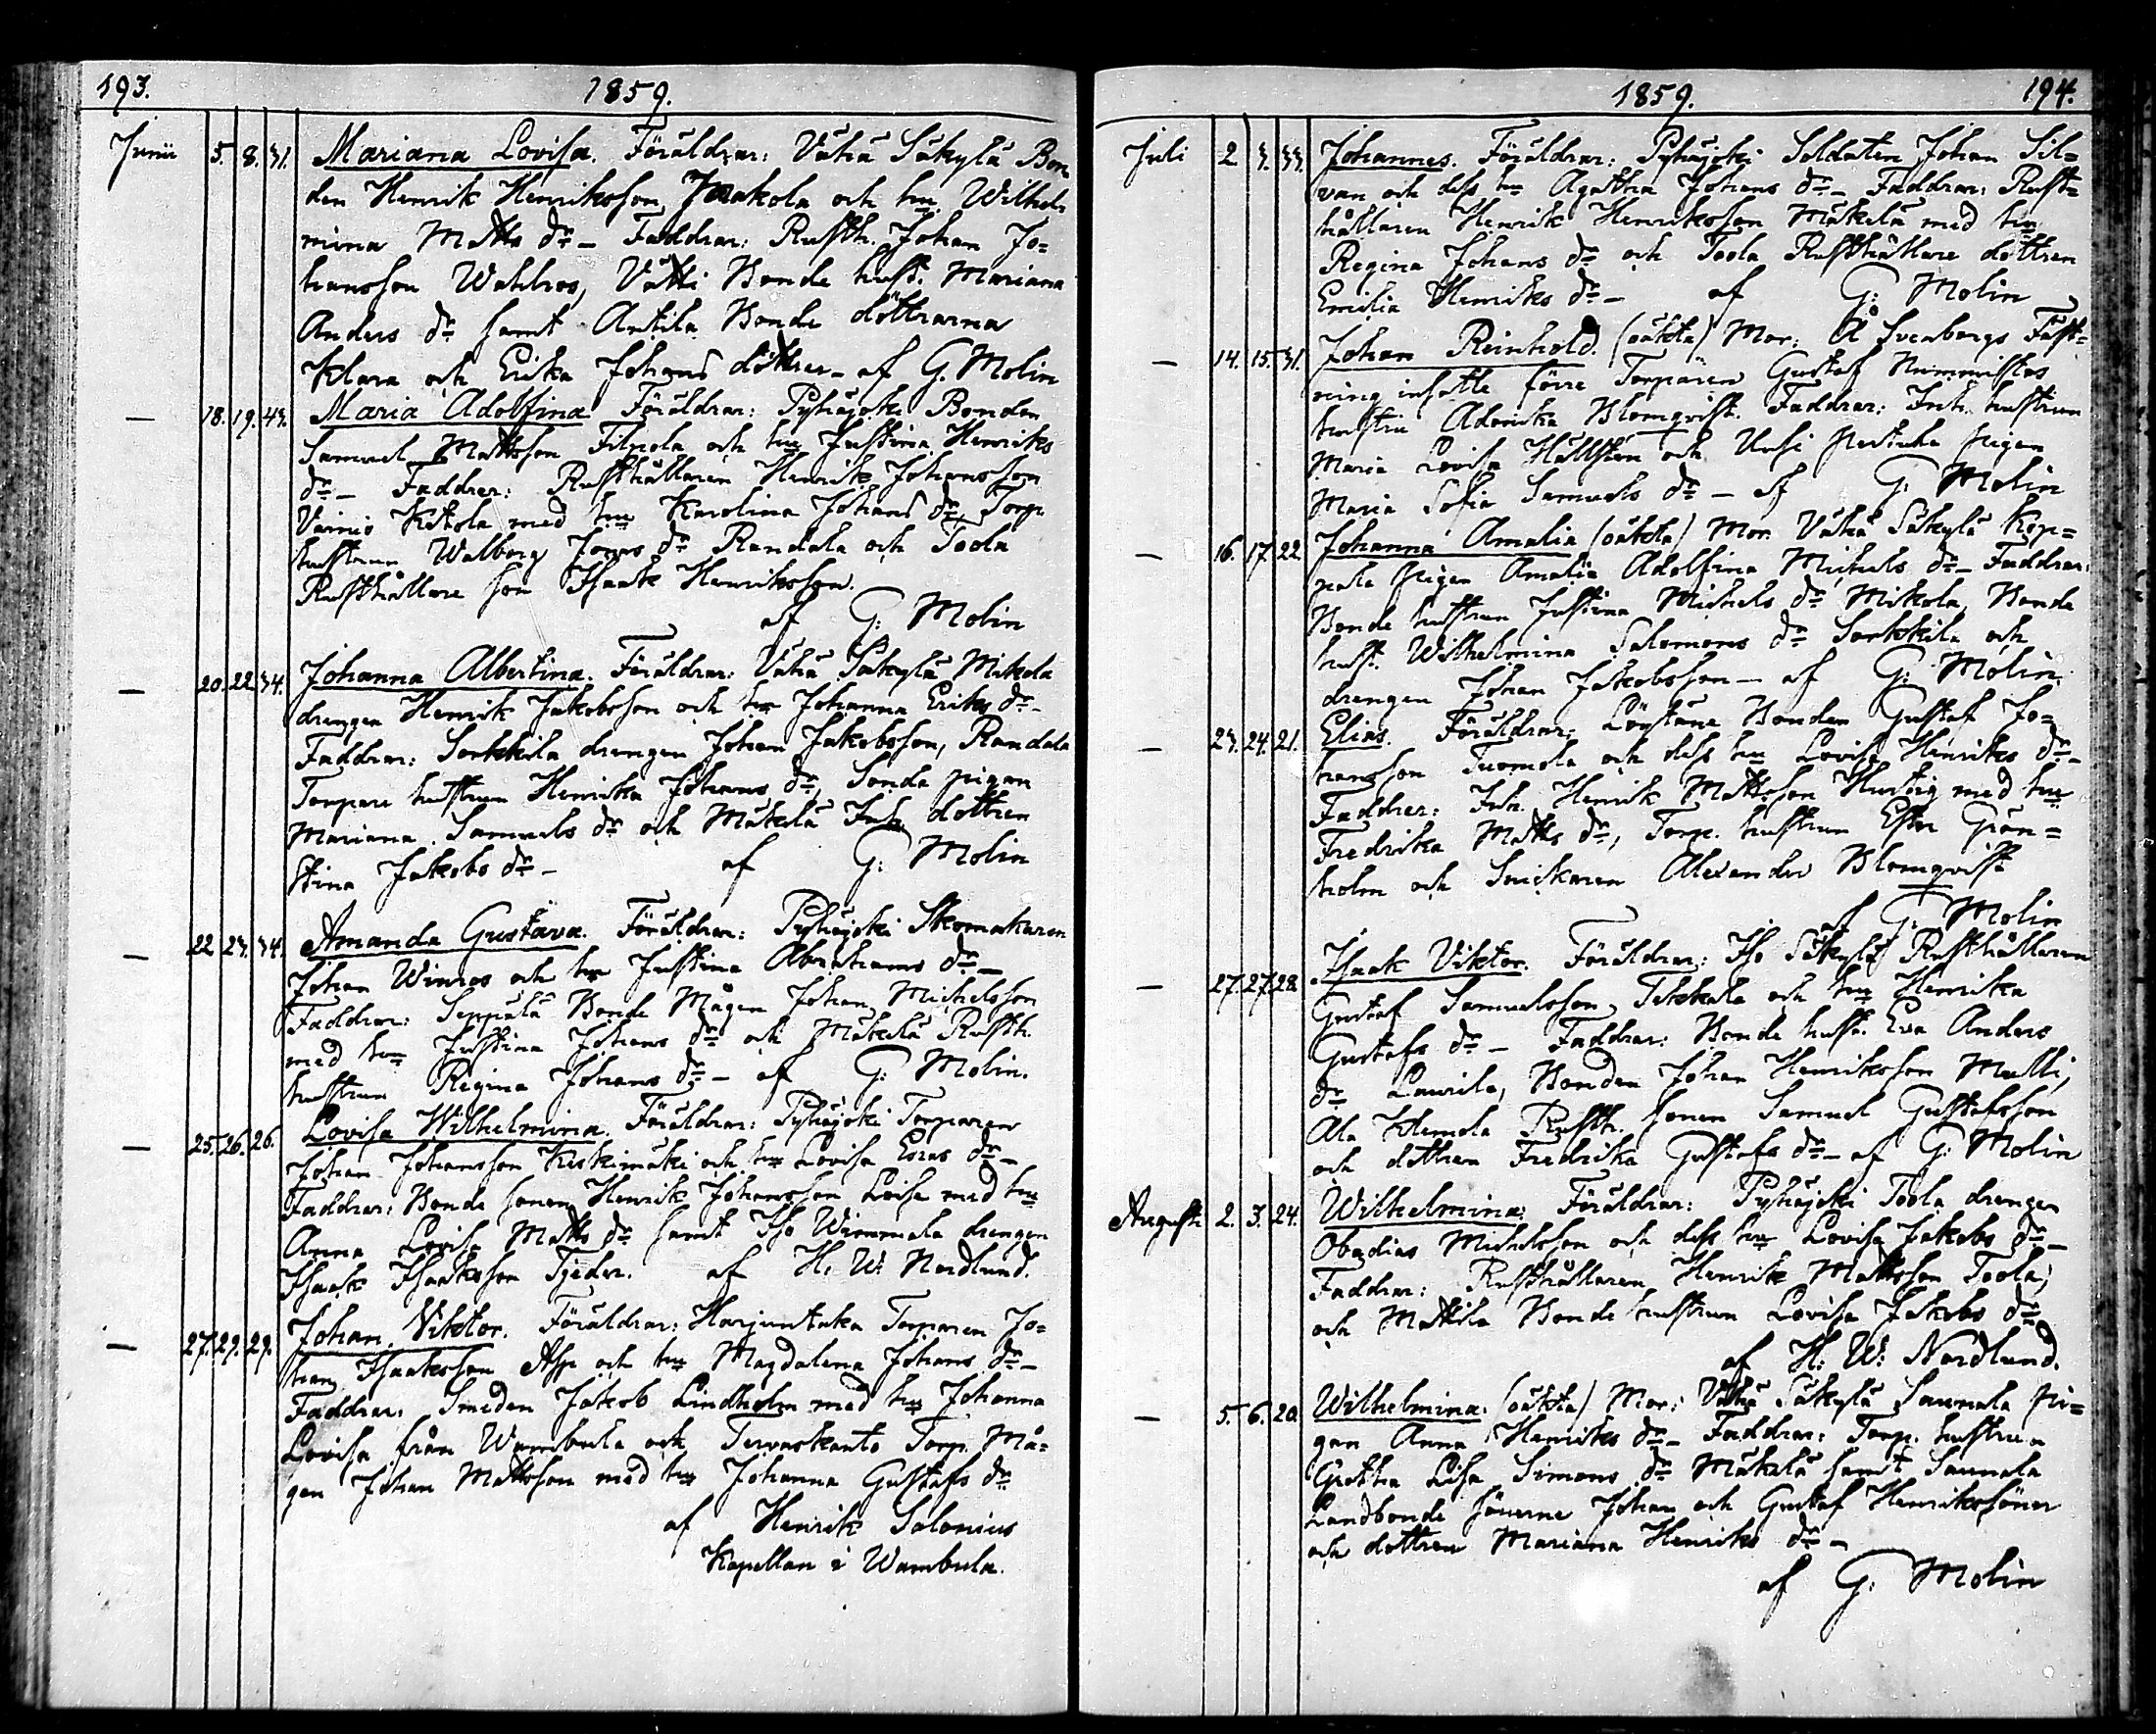 193. 1859.
Junii 5. 8. 31. Mariana Lovisa. Föräldrar: Vähä Säkylä Bon
den Henrik Henriksson Jaakola och hu Wilhel
mina Matts dr – Faddrar: Rusth. Johan Jo=
hansson Wahlros, Vätti Bonde hust. Mariana
Anders dr samt Antila Bonde döttrarna
Klara och Erika Johans döttrar – af G. Molin
— 18. 19. 43. Maria Adolfina. Föräldrar: Pyhäjoki Bonden
Samuel Mattsson Filpola och hu Justina Henriks
dr – Faddrar: Rusthållaren Henrik Johansson
Vainio Ketola med hu Karolina Johans dr, Torp.
hustrun Walborg Jonas dr Randala och Toola
Rusthållare son Isaak Henriksson.
af G: Molin
— 20. 22. 34. Johanna Albertina. Föräldrar: Vähä Säkylä Mikola
drengen Henrik Jakobsson och hu Johanna Eriks dr –
Faddrar: Sorkkila drengen Johan Jakobsson, Randala
Torpare hustrun Henrika Johans dr, Sonda pigan
Mariana Samuels dr och Mäkelä Inh. dottren
Stina Jakobs dr – af G: Molin
— 22 23. 34. Amanda Gustava. Föräldrar: Pyhäjoki Skomakaren
Johan Winros och hu Justina Abrahams dr –
Faddrar: Seppälä Bonde Mågen Johan Michelsson
med hu Justina Johans dr och Mäkelä Rusth.
hustrun Regina Johans dr – af G: Molin.
— 25. 26. 26. Lovisa Wilhelmina. Föräldrar: Pyhäjoki Torparen
Johan Johansson Keskimäki och hu Lovisa Esras dr –
Faddrar: Bonde sonen Henrik Johansson Loisa med hu
Anna Lovisa Matts dr samt Iso Wimmala drengen
Isaak Isaksson Tjeder. af H. W: Nordlund.
— 27. 29. 29. Johan Viktor. Föräldrar: Harjuntaka Torparen Jo=
han Isaaksson Asp och hu Magdalena Johans dr –
Faddrar: Smeden Jakob Lindholm med hu Johanna
Lovisa från Wambula och Tervaskanto Torp. Må=
gen Johan Mattsson med hu Johanna Gustafs dr
af Henrik Salonius
Kapellan i Wambula.
1859. 194.
Juli 2 3. 33. Johannes. Föräldrar: Pyhäjoki Soldaten Johan Sil=
van och dess hu Agatha Johans dr – Faddrar: Rust=
hållaren Henrik Henriksson Mäkelä med hu
Regina Johans dr och Toola Rusthållare dottren
Emilia Henriks dr – af G: Molin
— 14. 15. 31. Johan Reinhold. (oäkta) Mor: Å Sveaborgs Fäst=
ning insatte förre Torparen Gustaf Nummistos
hustru Adorika Blomqvist. Faddrar: Inh. hustrun
Maria Lovisa Hällstén och Uusi Perttula pigan
Maria Sofia Samuels dr – af G: Molin
— 16. 17. 22 Johanna Amalia (oäkta) Mor. Vähä Säkylä Kop=
pala pigan Amalia Adolfina Michels dr – Faddrar:
Bonde hustrun Justina Michels dr Mikola, Bonde
hust. Wilhelmina Salomons dr Sorkkila och
drengen Johan Jakobsson – af G: Molin.
— 23. 24. 21. Elias. Föräldrar: Löytäne Bonden Gustaf Jo=
hansson Tuomola och dess hu Lovisa Henriks dr –
Faddrar: Inh. Henrik Mattsson Hurtig med hu
Fredrika Matts dr, Torp. hustrun Ester Grön=
holm och Snickaren Alexander Blomqvist
af G: Molin
— 27. 27. 28. Isaak Viktor. Föräldrar: Iso Säkylä Rusthållaren
Gustaf Samuelsson Tekkala och hu Henrika
Gustafs dr – Faddrar: Bonde hust. Eva Anders
dr Laurila, Bonden Johan Henriksson Mulli,
Ala Klemola Rusth. sonen Samuel Gustafsson
och dottren Fredrika Gustafs dr – af G: Molin
Augusti 2. 3. 24. Wilhelmina: Föräldrar: Pyhäjoki Toola drengen
Obadias Michelsson och dess hu Lovisa Jakobs dr –
Faddrar: Rusthållaren Henrik Mattsson Toola,
och Mattila Bonde hustrun Lovisa Jakobs dr
af H: W: Nordlund.
— 5. 6. 20. Wilhelmina: (oäkta) Mor: Vähä Säkylä Saunala pi=
gan Anna Henriks dr – Faddrar: Torp. hustrun
Gretha Lisa Simons dr Mäkälä samt Saunala
Landbonde sönerne Johan och Gustaf Henrikssöner
och dottren Mariana Henriks dr –
af G: Molin